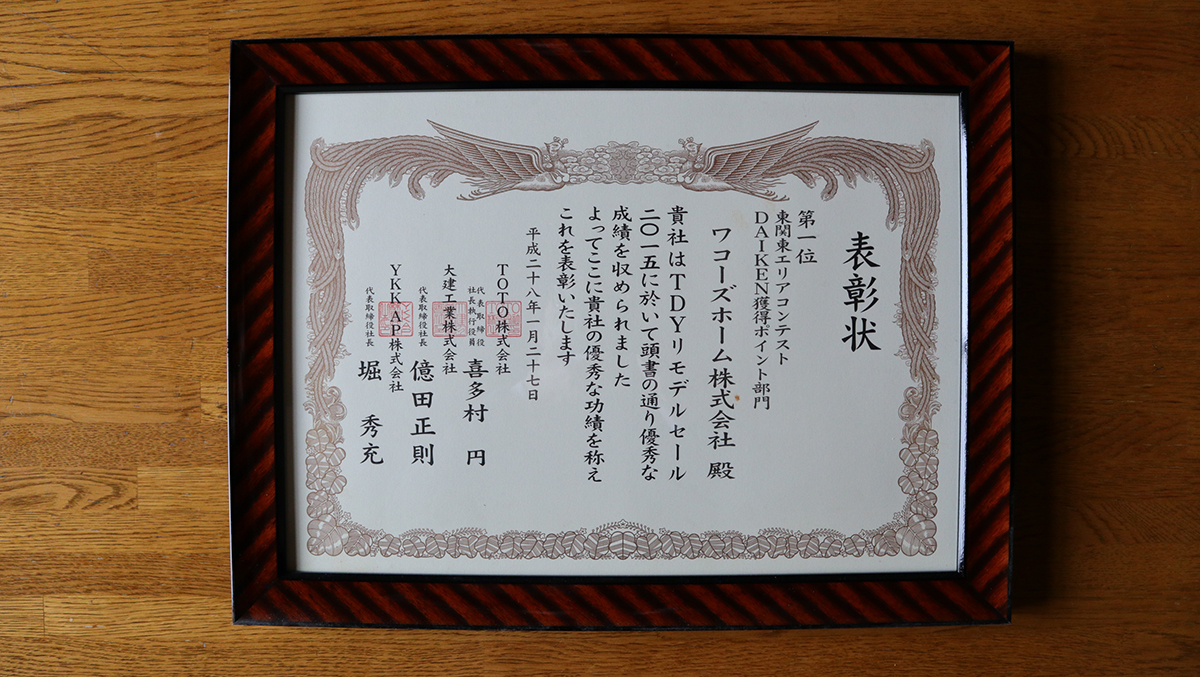 表彰状
第一位
東関東エリアコンテスト
DAIKEN獲得ポイント部門
ワコーズホーム株式会社 殿
貴社はTDYリモデルセール
二〇一五に於いて頭書の通り優秀な
成績を収められました
よってここに貴社の優秀な功績を称え
これを表彰いたします
平成二十八年一月二十七日
TOTO株式会社
代表取締役
社長執行役員
喜多村 円
大建工業株式会社
代表取締役社長
億田正則
YKK AP株式会社
代表取締役社長
堀 秀充